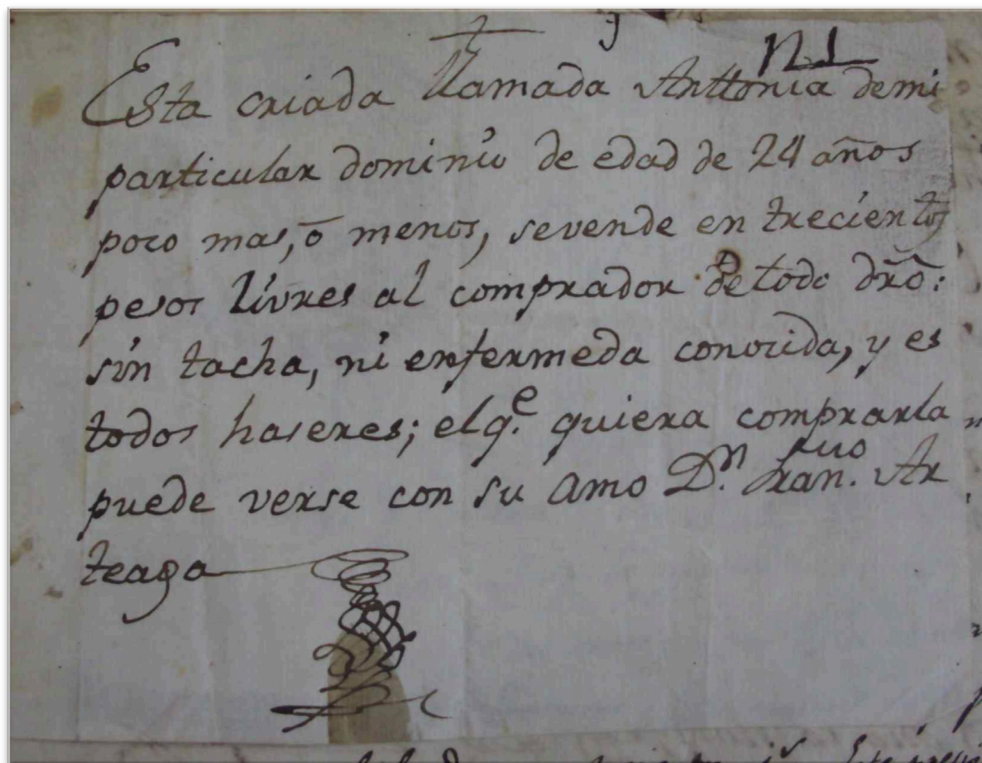 N 1
Esta criada llamada Anttonia demi
particular dominio de edad de 24 años
poco mas, ò menos, sevende en trecientos
pesos livres al comprador de todo dr̃o:
sin tacha, ni enfermeda conocida, y es
todos haseres; elq.e quiera comprarla
puede verse con su amo D.n Fran.co Ar
teaga